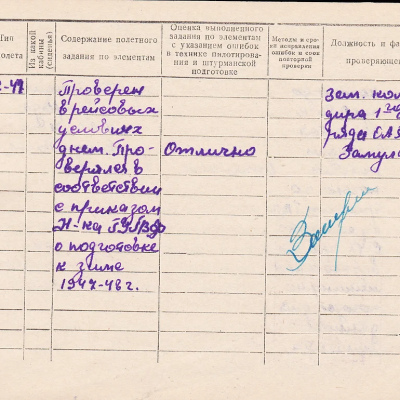 Тип
олета
Из какой
кабины
(сиденье)
Содержание полетного
задания по элементам
Оценка выполненного
задания по элементам
с указанием ошибок
в технике пилотирова-
ния и штурманской
подготовке
Методы и сро-
ки исправления
ошибок и срок
повторной
проверки
Должность и фа
проверяющег
Проверен
в рейсовых
условиях
днем. Про-
верялся в
соответствии
с приказом
Н-ка ГУГВФ
о подготовке
к зиме
1947-48 г.
Отлично
Зам. ком
дира 1